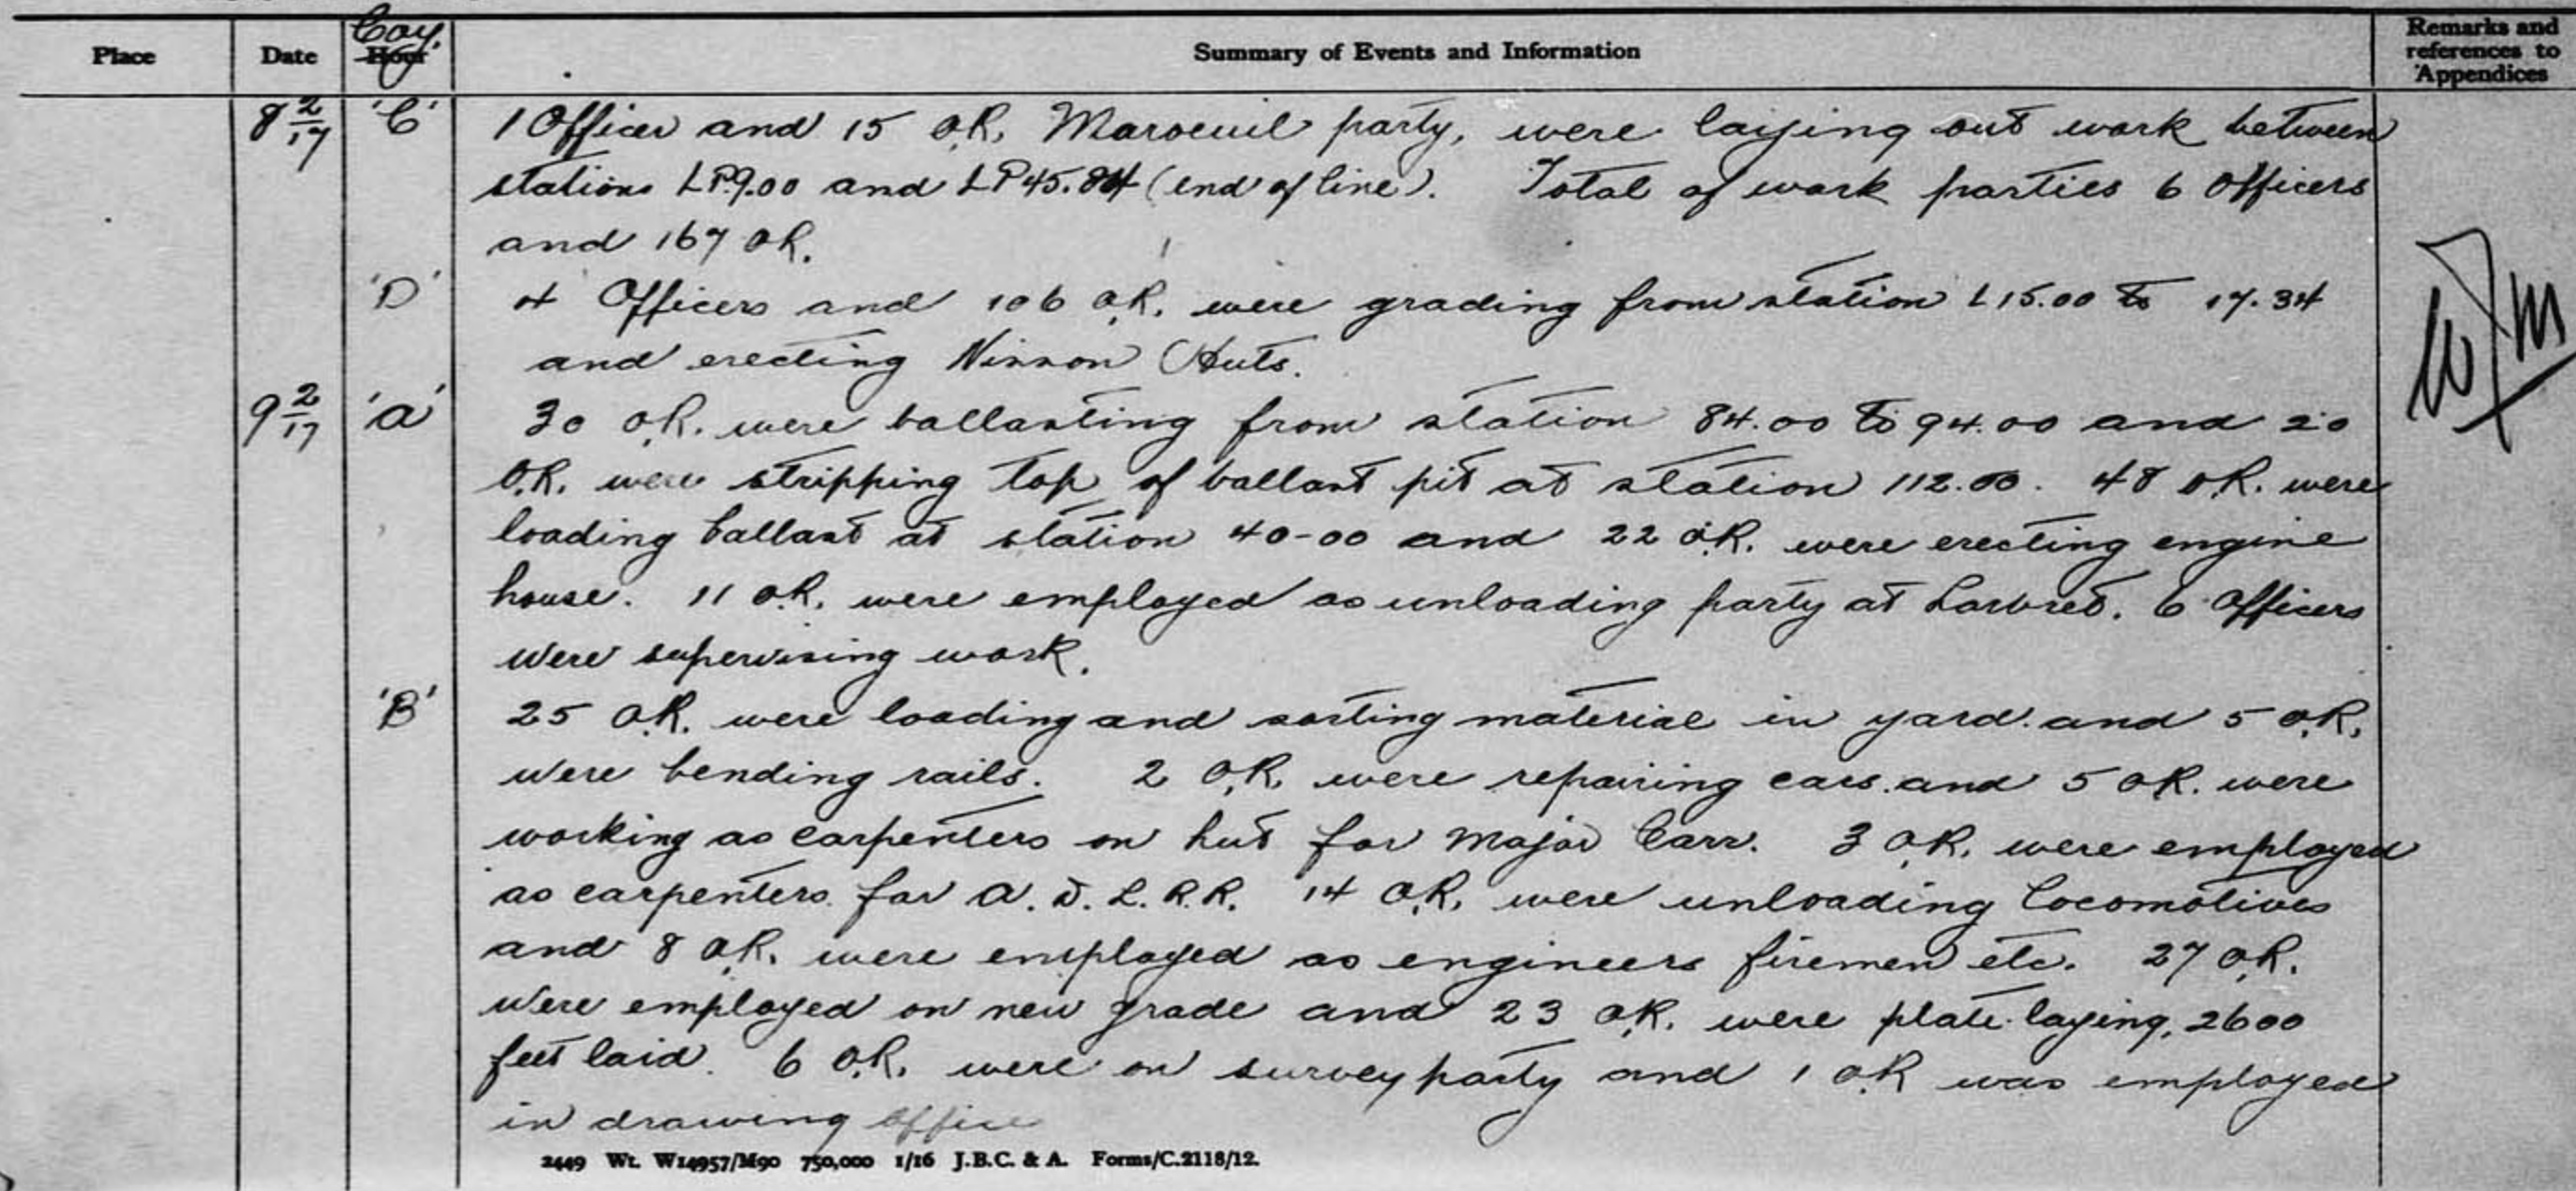 Place Date Coy. Hour Summary of Events and Information Remarks and references to Appendices
8 2/17 'C' 1 Officer and 15 O.R. Maroeuil party, were laying out work between
stations LP9.00 and LP45.84 (end of line). Total of work parties 6 Officers
and 167 OR.
'D' 4 Officers and 106 O.R. were grading from station L15.00 to 17.34
and erecting Nisson Huts.
9 2/17 'A' 30 O.R. were ballasting from station 84.00 to 94.00 and 20
O.R. were stripping top of ballast pit at station 112.00. 48 O.R. were
loading ballast at station 40-00 and 22 O.R. were erecting engine
house. 11 O.R. were employed as unloading party at Larbret. 6 Officers
were supervising work.
'B' 25 O.R. were loading and sorting material in yard and 5 O.R.
were bending rails. 2 O.R. were repairing cars and 5 OR. were
working as carpenters on hut for Major Carr. 3 O.R. were employed
as carpenters for A.D.L.R.R. 14 O.R. were unloading locomotives
and 8 O.R. were employed as engineers firemen etc. 27 O.R.
were employed on new grade and 23 O.R. were plate laying, 2600
feet laid. 6 O.R. were on survey party and 1 O.R was employed
in drawing office
2449 Wt. W14957/M90 750,000 1/16 J.B.C. & A. Forms/C.2118/12.